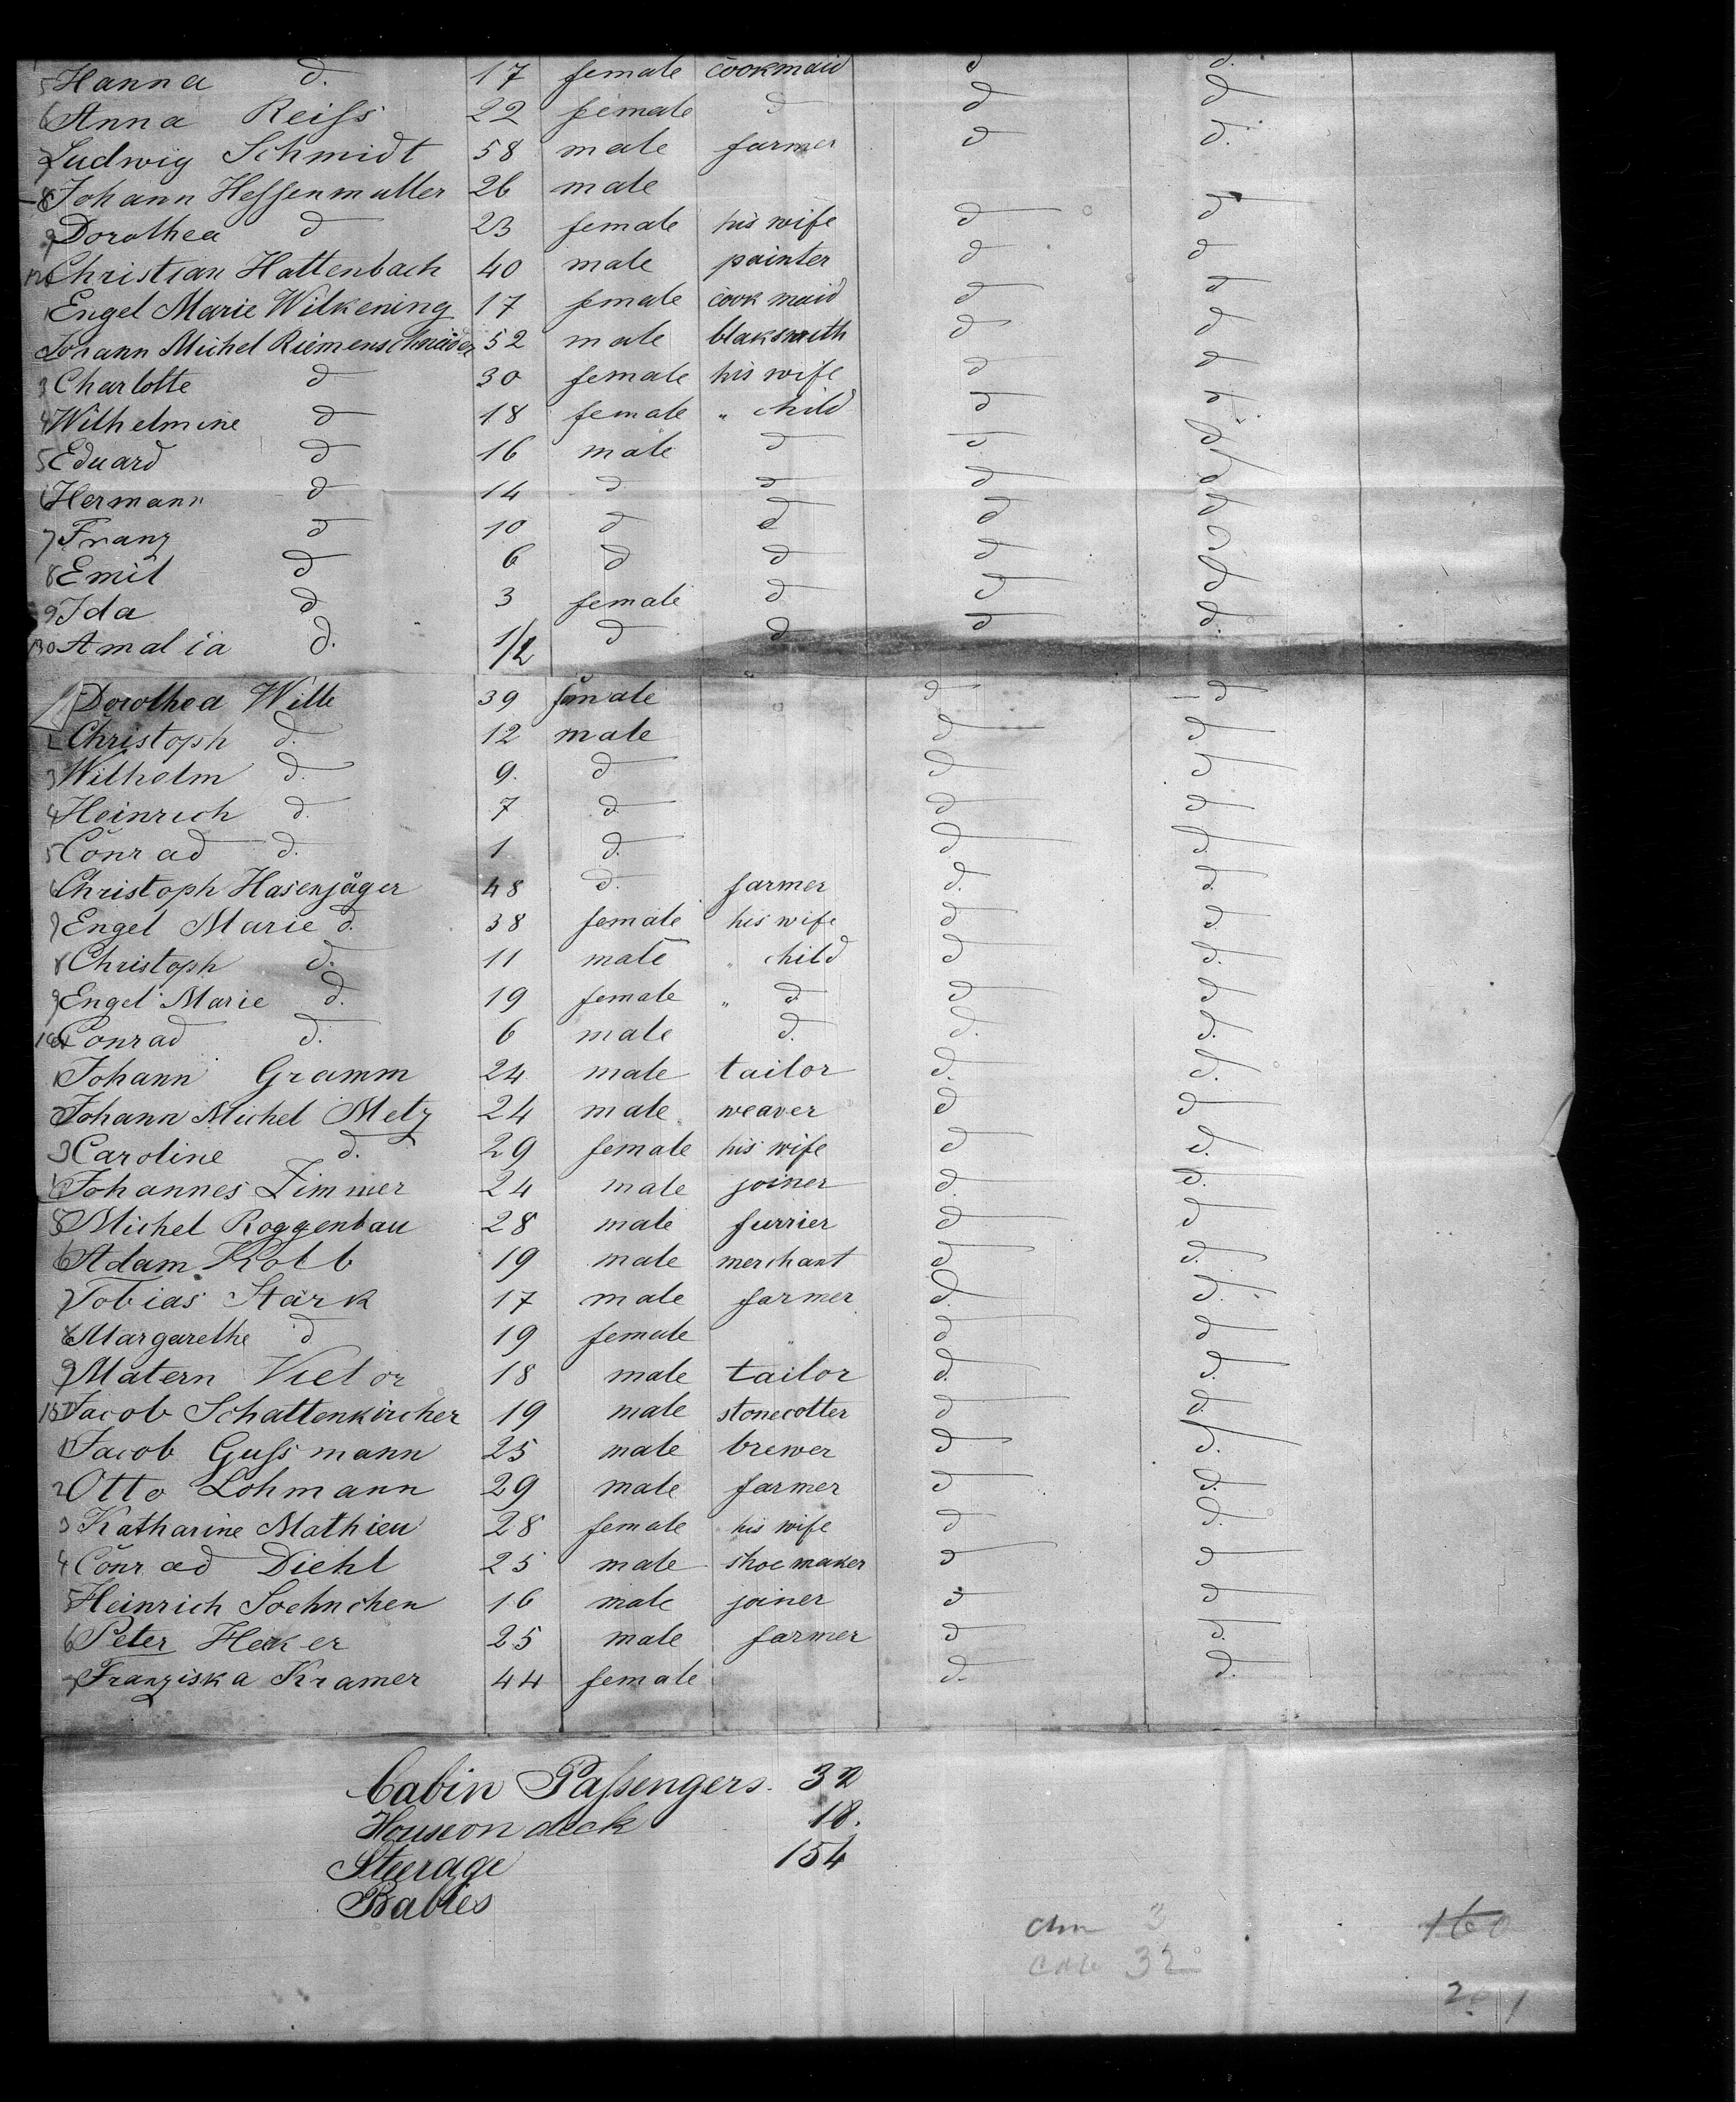 5 Hanna d. 17 female cookmaid d d.
6 Anna Reiſs 22 female d d d
7 Ludwig Schmidt 58 male farmer d d.
8 Johann Heſsenmuller 26 male
9 Dorothea d 23 female his wife d d
Christian Hattenbach 40 male painter d d
1 Engel Marie Wilkening 17 female cook maid d d
Johann Michel Riemenschneider 52 male blaksmith d d
3 Charlotte d 30 female his wife d d
4 Wilhelmine d 18 female " child d d
5 Eduard d 16 male d d d
6 Hermann d 14 d d d d
7 Franz d 10 d d d d
8 Emil d 6 d d d d
9 Ida d 3 female d d d
130 Amalia d. 1/2 d d d d.
1 Dorothea Wille 39 female d d
2 Christoph d. 12 male d d
3 Wilhelm d. 9. d d d
4 Heinrich d. 7 d d d
5 Conrad d. 1 d. d d.
6 Christoph Hasenjäger 48 d. farmer d. d.
7 Engel Marie d. 38 female his wife d d.
8 Christoph d. 11 male " child d d.
9 Engel Marie d. 19 female " d d d
140 Conrad d. 6 male d. d. d.
1 Johann Gramm 24 male tailor d. d.
2 Johann Michel Metz 24 male weaver d d
3 Caroline d. 29 female his wife d d.
4 Johannes Zimmer 24 male joiner d. d.
5 Michel Roggenbau 28 male furrier d d
6 Adam Kolb 19 male merchant d d.
7 Tobias Stark 17 male farmer d. d.
8 Margarethe d 19 female " d d
9 Matern Victor 18 male tailor d. d.
150 Jacob Schattenkircher 19 male stonecotter d d.
1 Jacob Guſsmann 25 male brewer d d.
2 Otto Lohmann 29 male farmer d d.
3 Katharine Mathieu 28 female his wife d d.
4 Conrad Diehl 25 male shoemaker d d
5 Heinrich Soehnchen 16 male joiner d d
6 Peter Heker 25 male farmer d d.
7 Franziska Kramer 44 female d. d.
Cabin Paſsengers. 32
House on deck 18.
Steerage 154
Babies
3 160
32